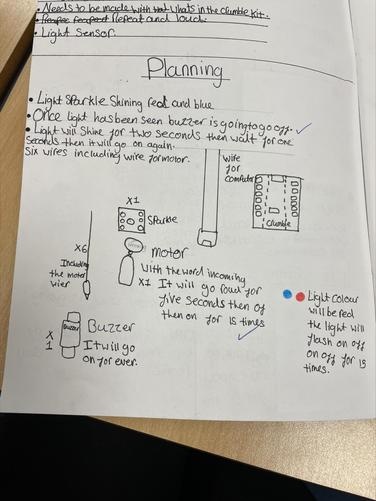 • Needs to be made with whats in the Crumble Kit.
• Repeat and loud.
• Light Sensor.
Planning
• Light Sparkle Shining red and blue
• Once light has been seen buzzer is going to go off.
• Light will Shine for two seconds then wait for one
seconds then it will go on again.
Six wires including wire for motor.
wire
for
Computer
Crumble
X1
Sparkle
X6
Including
the motor
wier
motor
With the word incoming
X1 It will go foud for
five seconds then of
then on for 15 times
Buzzer
X
1
Buzzer
It will go
on for ever.
Light colour
will be red
the light will
flash on off
on off for 15
times.